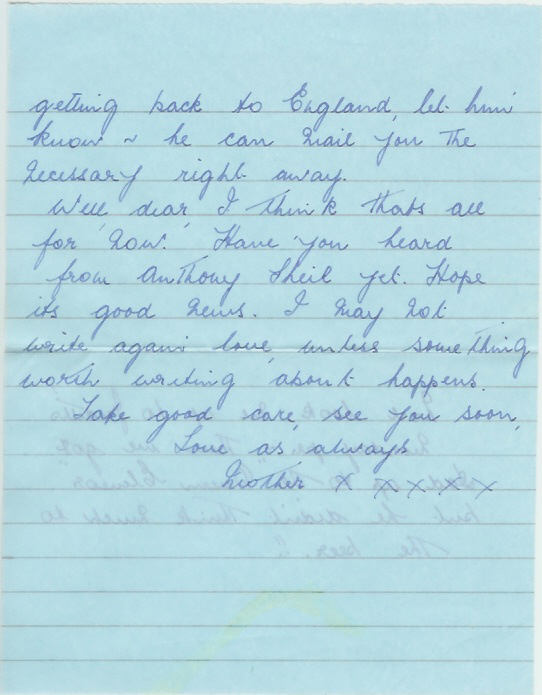 getting back to England, let him
know ~ he can mail you the
necessary right away.
Well dear, I think thats all
for now. Have you heard
from Anthony Sheil yet. Hope
its good news. I may not
write again love, unless something
worth writing about happens.
Take good care, see you soon,
Love as always
Mother x x x x x